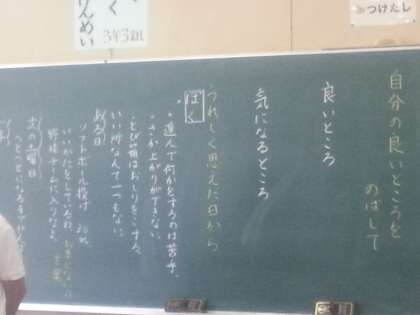 自分の良いところを
のばして
良いところ
気になるところ
うれしく思えた日から
ぼく
・進んで何かをするのは苦手。
・さか上がりができない。
・とび箱はおしりをこする。
いい所なんて一つもない。
ある日
ソフトボール投げ
野球チームに入りなよ。
次の土曜日
く
3年3組
けんめい
つけたし